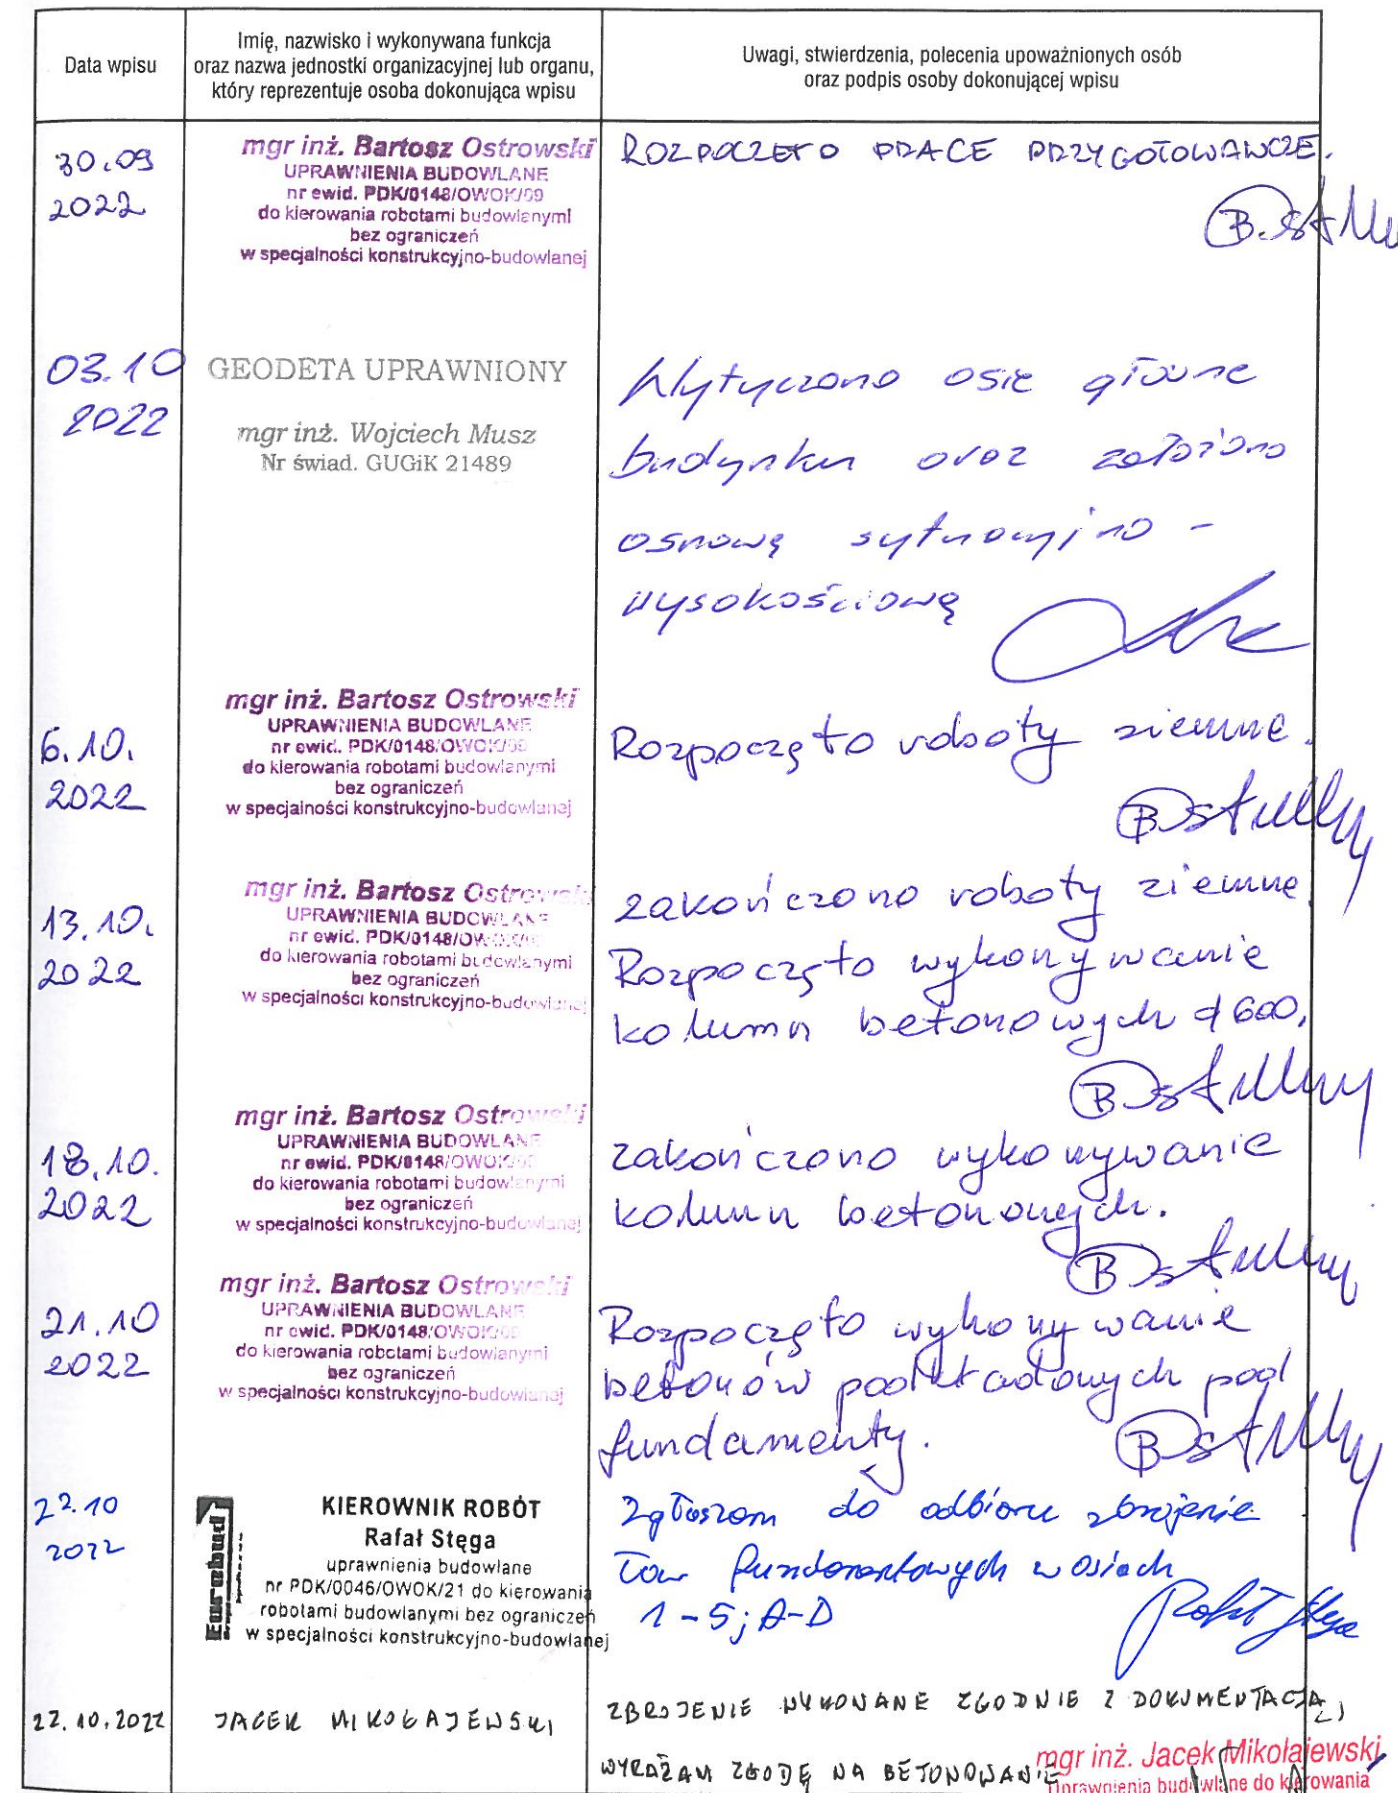 Data wpisu
Imię, nazwisko i wykonywana funkcja
oraz nazwa jednostki organizacyjnej lub organu,
który reprezentuje osoba dokonująca wpisu
Uwagi, stwierdzenia, polecenia upoważnionych osób
oraz podpis osoby dokonującej wpisu
30.09
2022
mgr inż. Bartosz Ostrowski
UPRAWNIENIA BUDOWLANE
nr ewid. PDK/0148/OWOK/09
do kierowania robotami budowlanymi
bez ograniczeń
w specjalności konstrukcyjno-budowlanej
ROZPOCZĘTO PRACE PRZYGOTOWAWCZE.
03.10
2022
GEODETA UPRAWNIONY
mgr inż. Wojciech Musz
Nr świad. GUGiK 21489
Wytyczono osie główne
budynku oraz założono
osnowę sytuacyjno -
wysokościową
6.10.
2022
mgr inż. Bartosz Ostrowski
UPRAWNIENIA BUDOWLANE
nr ewid. PDK/0148/OWOK/09
do kierowania robotami budowlanymi
bez ograniczeń
w specjalności konstrukcyjno-budowlanej
Rozpoczęto roboty ziemne.
13.10.
2022
mgr inż. Bartosz Ostrowski
UPRAWNIENIA BUDOWLANE
nr ewid. PDK/0148/OWOK/09
do kierowania robotami budowlanymi
bez ograniczeń
w specjalności konstrukcyjno-budowlanej
Zakończono roboty ziemne.
Rozpoczęto wykonywanie
kolumn betonowych ø600.
18.10.
2022
mgr inż. Bartosz Ostrowski
UPRAWNIENIA BUDOWLANE
nr ewid. PDK/0148/OWOK/09
do kierowania robotami budowlanymi
bez ograniczeń
w specjalności konstrukcyjno-budowlanej
Zakończono wykonywanie
kolumn betonowych.
21.10
2022
mgr inż. Bartosz Ostrowski
UPRAWNIENIA BUDOWLANE
nr ewid. PDK/0148/OWOK/09
do kierowania robotami budowlanymi
bez ograniczeń
w specjalności konstrukcyjno-budowlanej
Rozpoczęto wykonywanie
betonów podkładowych pod
fundamenty.
22.10
2022
Eurobud
KIEROWNIK ROBÓT
Rafał Stęga
uprawnienia budowlane
nr PDK/0046/OWOK/21 do kierowania
robotami budowlanymi bez ograniczeń
w specjalności konstrukcyjno-budowlanej
Zgłaszam do odbioru zbrojenie
ław fundamentowych w osiach
1-5; A-D
22.10.2022
JACEK MIKOŁAJEWSKI
ZBROJENIE WYKONANE ZGODNIE Z DOKUMENTACJĄ,
WYRAŻAM ZGODĘ NA BETONOWANIE
mgr inż. Jacek Mikołajewski
Uprawnienia budowlane do kierowania